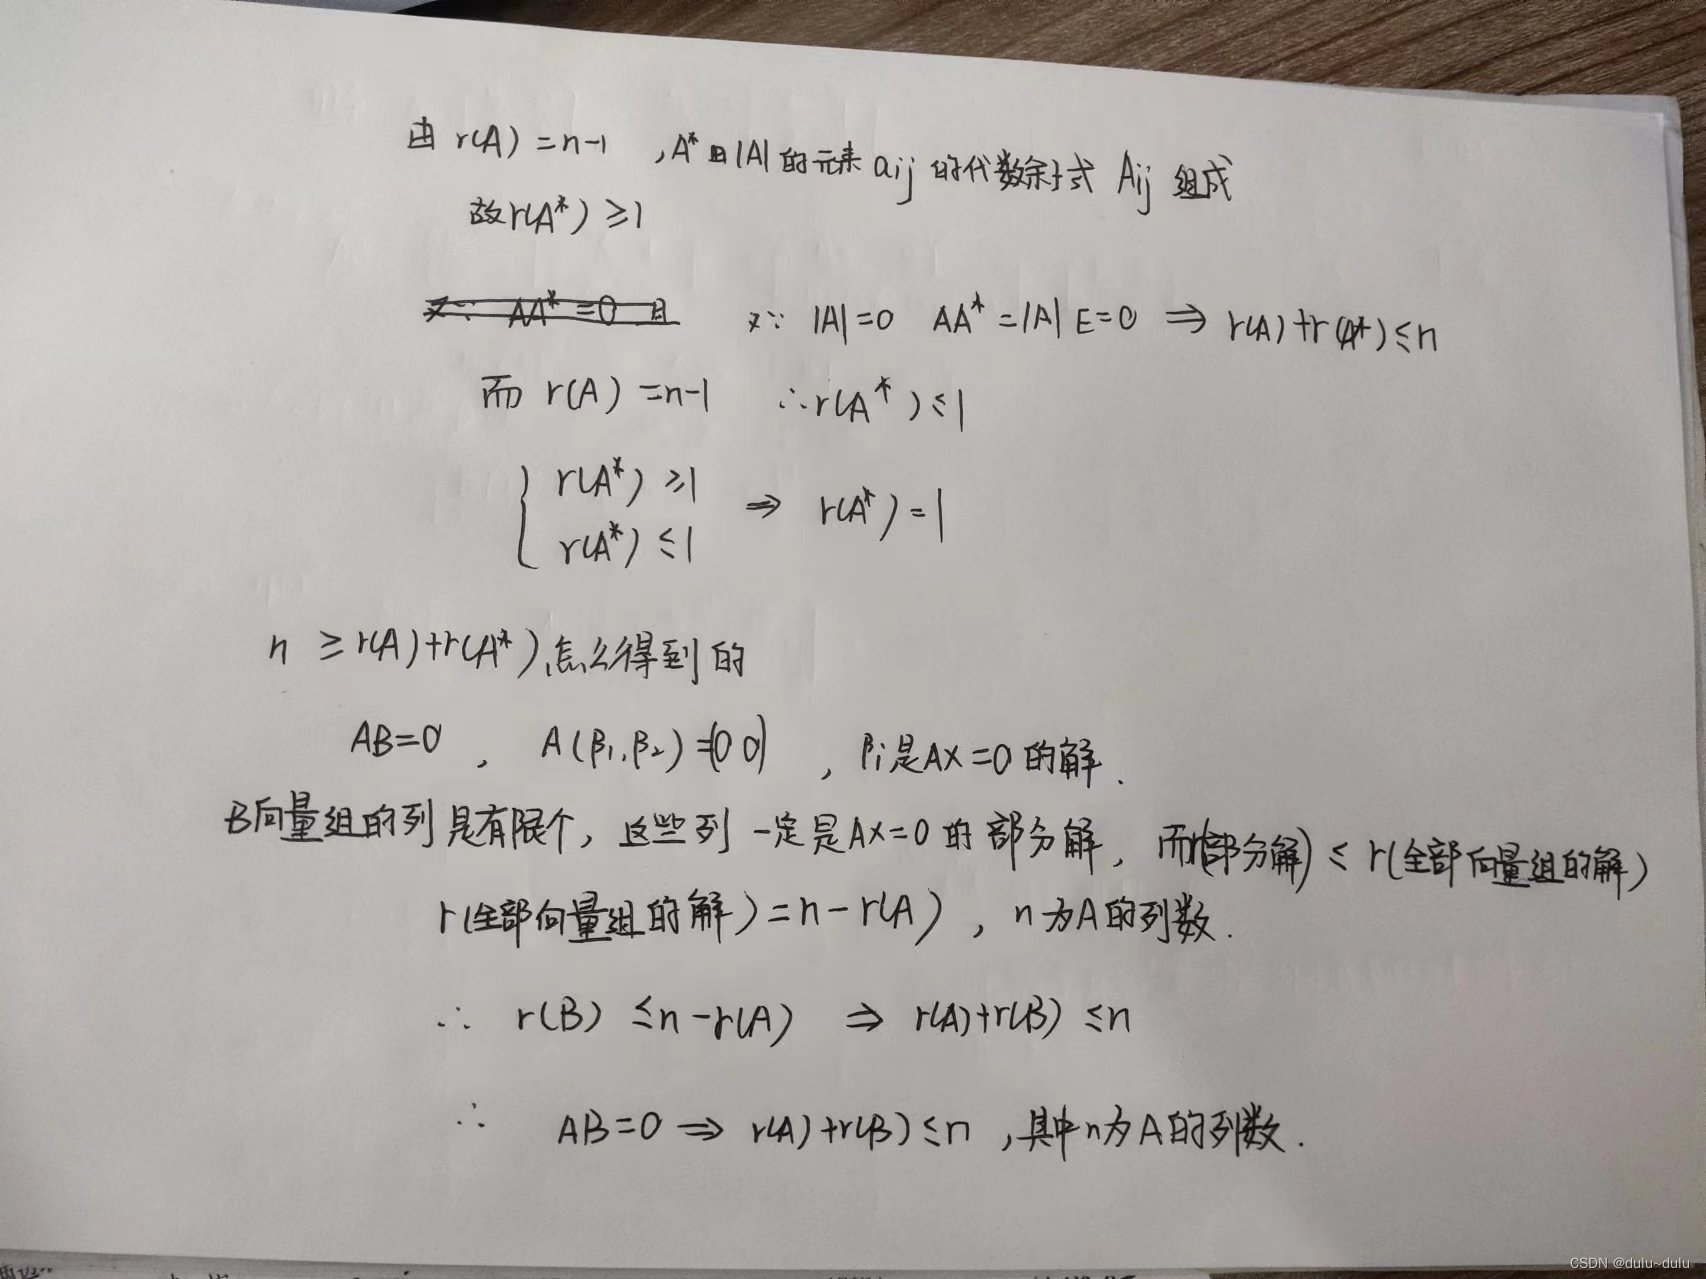 由 r(A)=n-1 ,A*由|A|的元素 aij 的代数余子式 Aij 组成
故r(A*)≥1
又∵ AA*=0 且 又∵ |A|=0 AA*=|A|E=0 ⇒ r(A)+r(A*)≤n
而 r(A)=n-1 ∴r(A*)≤1
{ r(A*)≥1
r(A*)≤1 ⇒ r(A*)=1
n ≥r(A)+r(A*),怎么得到的
AB=0 , A(β1,β2)=(0 0) , βi是AX=0的解.
B向量组的列是有限个, 这些列一定是AX=0的部分解, 而r(部分解)≤r(全部向量组的解)
r(全部向量组的解)=n-r(A) , n为A的列数.
∴ r(B)≤n-r(A) ⇒ r(A)+r(B)≤n
∴ AB=0 ⇒ r(A)+r(B)≤n ,其中n为A的列数.
CSDN @dulu~dulu